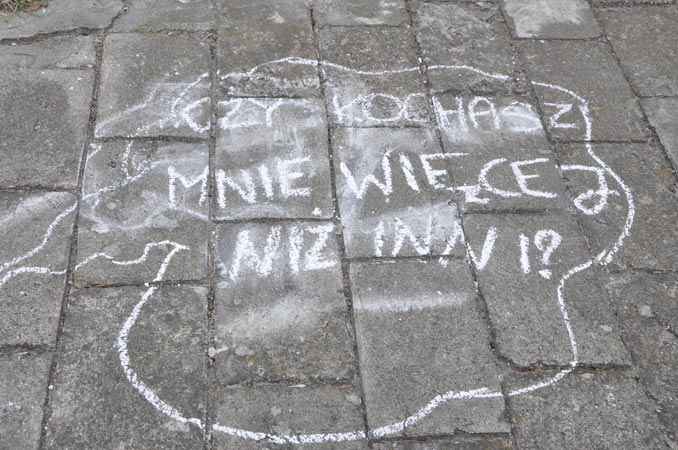 CZY KOCHASZ
MNIE WIĘCEJ
NIŻ INNI?